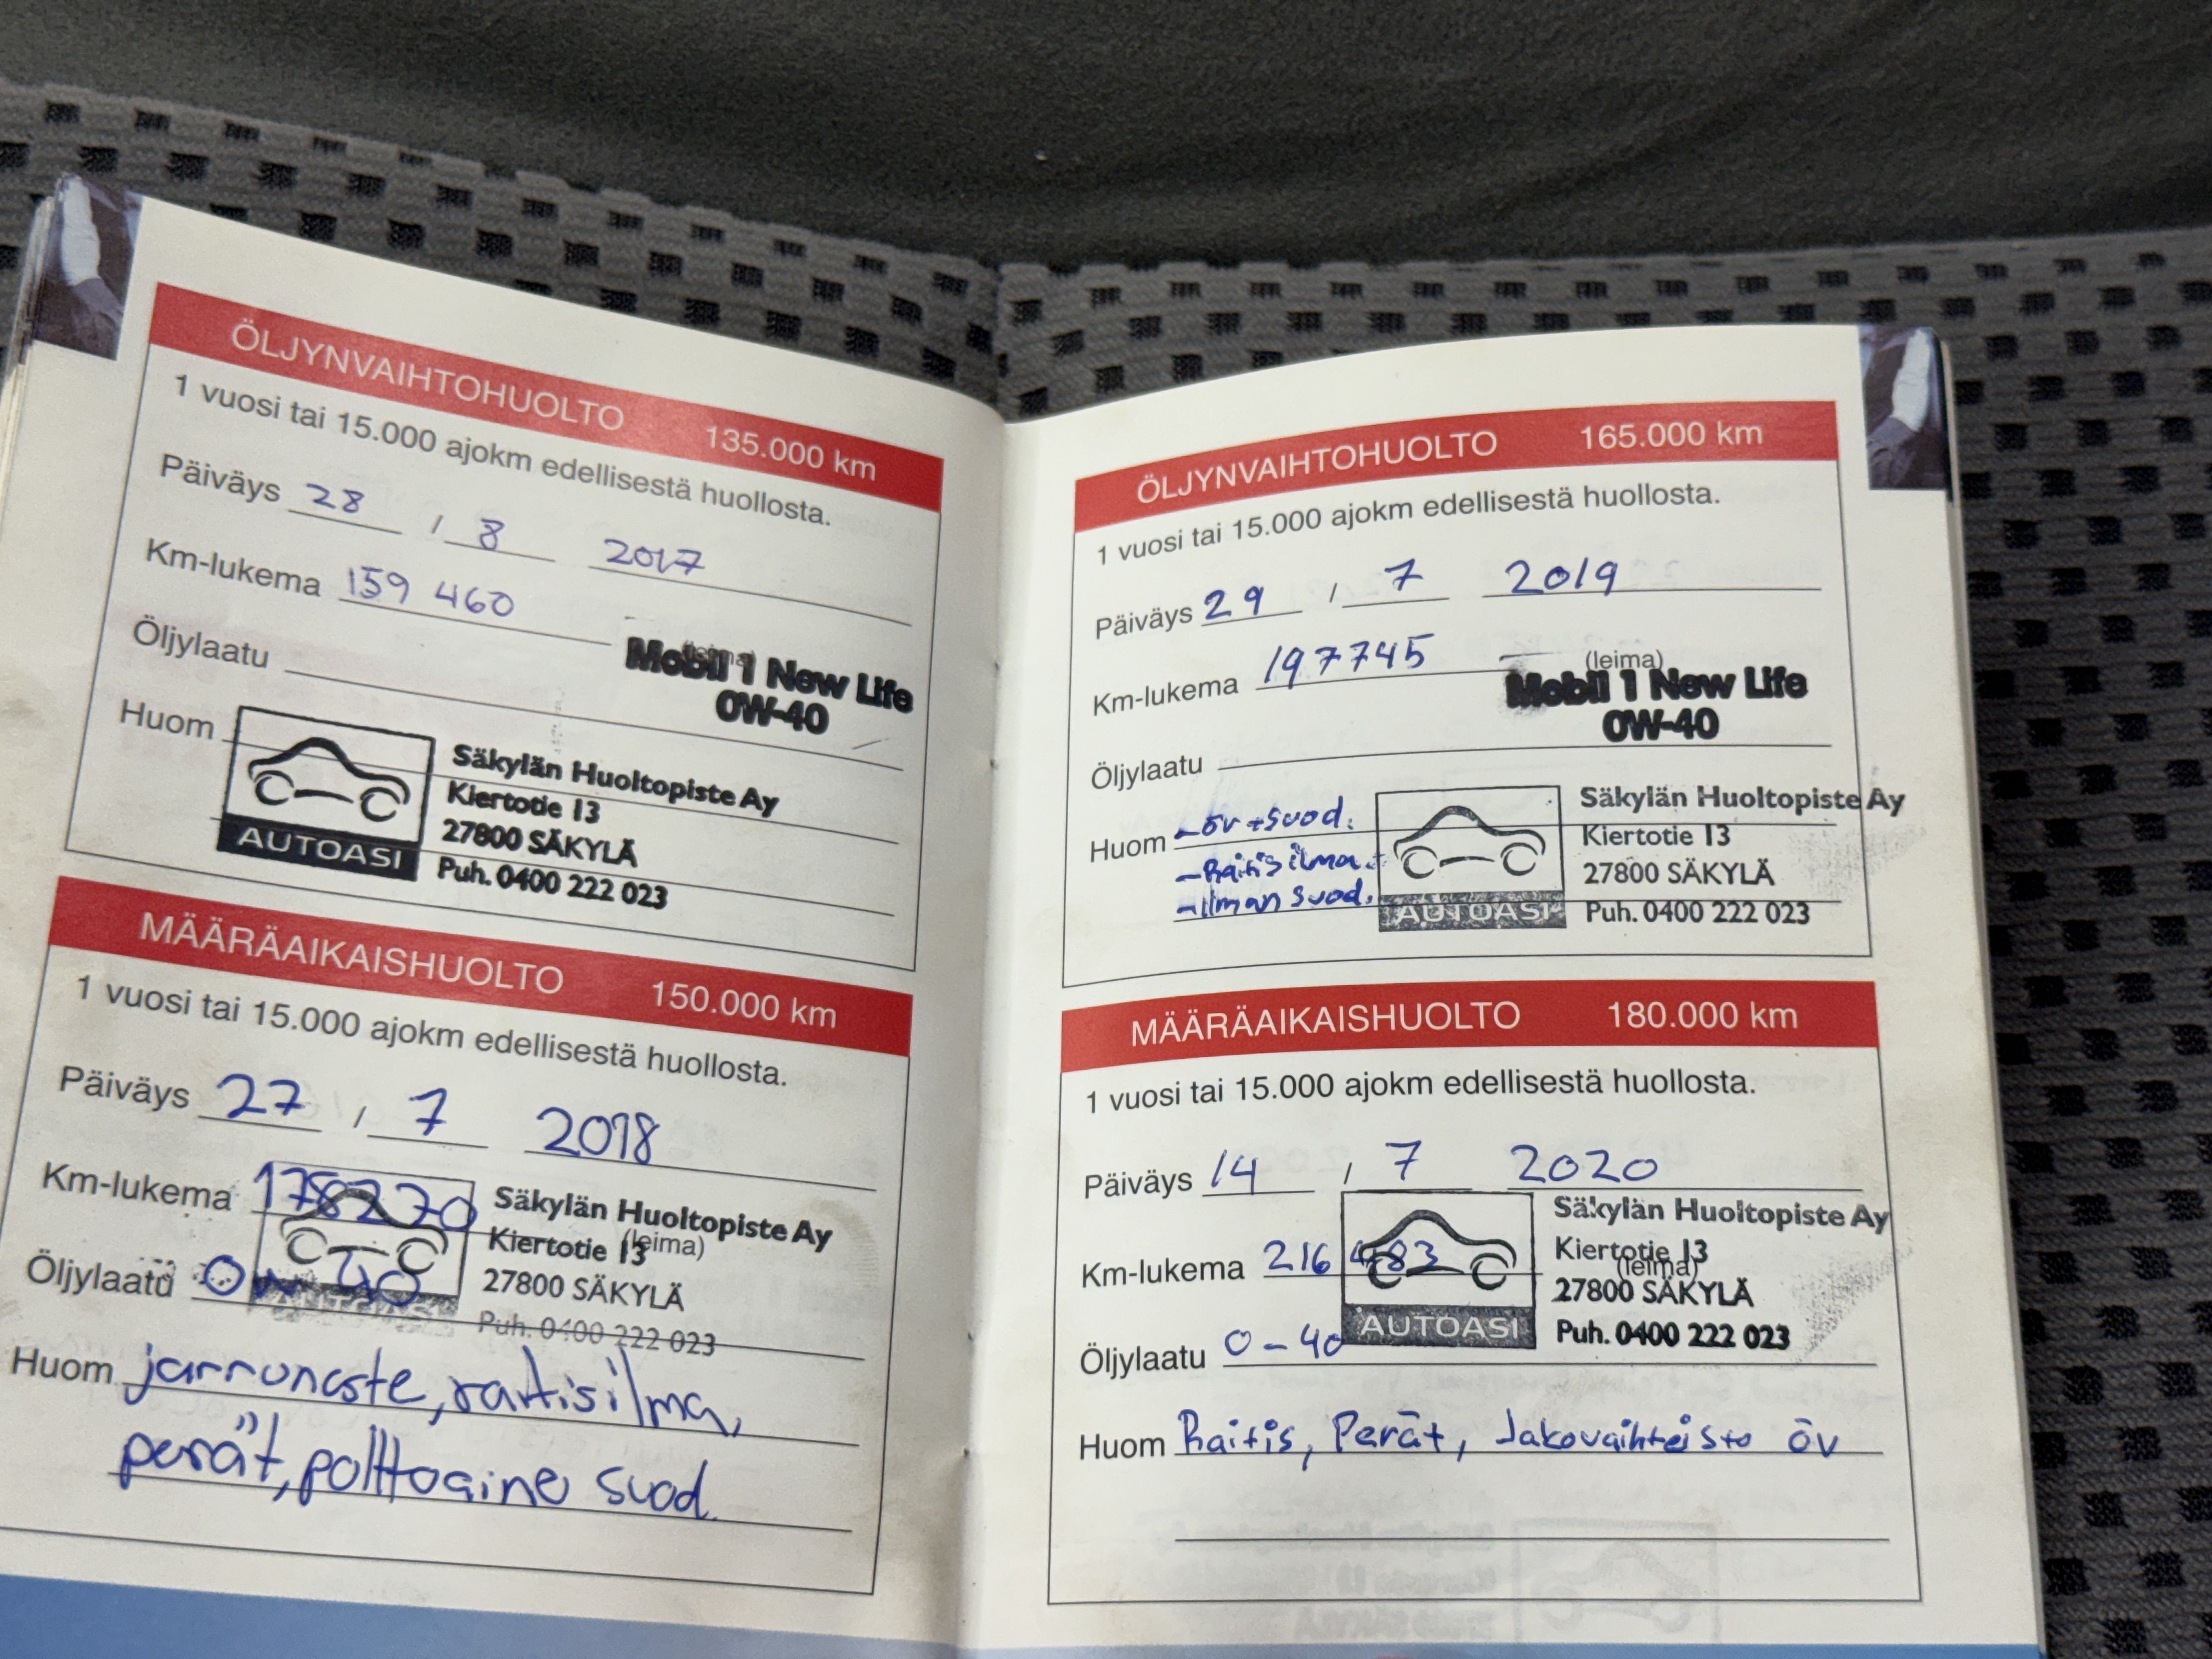 ÖLJYNVAIHTOHUOLTO 135.000 km
1 vuosi tai 15.000 ajokm edellisestä huollosta.
Päiväys 28 / 8 2017
Km-lukema 159 460
(leima)
Mobil 1 New Life
0W-40
Öljylaatu
Huom
Säkylän Huoltopiste Ay
Kiertotie 13
27800 SÄKYLÄ
Puh. 0400 222 023
AUTOASI
MÄÄRÄAIKAISHUOLTO 150.000 km
1 vuosi tai 15.000 ajokm edellisestä huollosta.
Päiväys 27 / 7 2018
Km-lukema 178270
Säkylän Huoltopiste Ay
Kiertotie 13
(leima)
27800 SÄKYLÄ
Puh. 0400 222 023
Öljylaatu 0W 40
Huom jarruneste, raitisilma,
perät, polttoaine suod.
ÖLJYNVAIHTOHUOLTO 165.000 km
1 vuosi tai 15.000 ajokm edellisestä huollosta.
Päiväys 29 / 7 2019
Km-lukema 197745
(leima)
Mobil 1 New Life
0W-40
Öljylaatu
Huom - öv + suod.
- Raitisilma.
- ilman suod.
Säkylän Huoltopiste Ay
Kiertotie 13
27800 SÄKYLÄ
Puh. 0400 222 023
AUTOASI
MÄÄRÄAIKAISHUOLTO 180.000 km
1 vuosi tai 15.000 ajokm edellisestä huollosta.
Päiväys 14 / 7 2020
Km-lukema 216 483
Säkylän Huoltopiste Ay
Kiertotie 13
(leima)
27800 SÄKYLÄ
Puh. 0400 222 023
AUTOASI
Öljylaatu 0-40
Huom Raitis, Perät, Jakovaihteisto öv